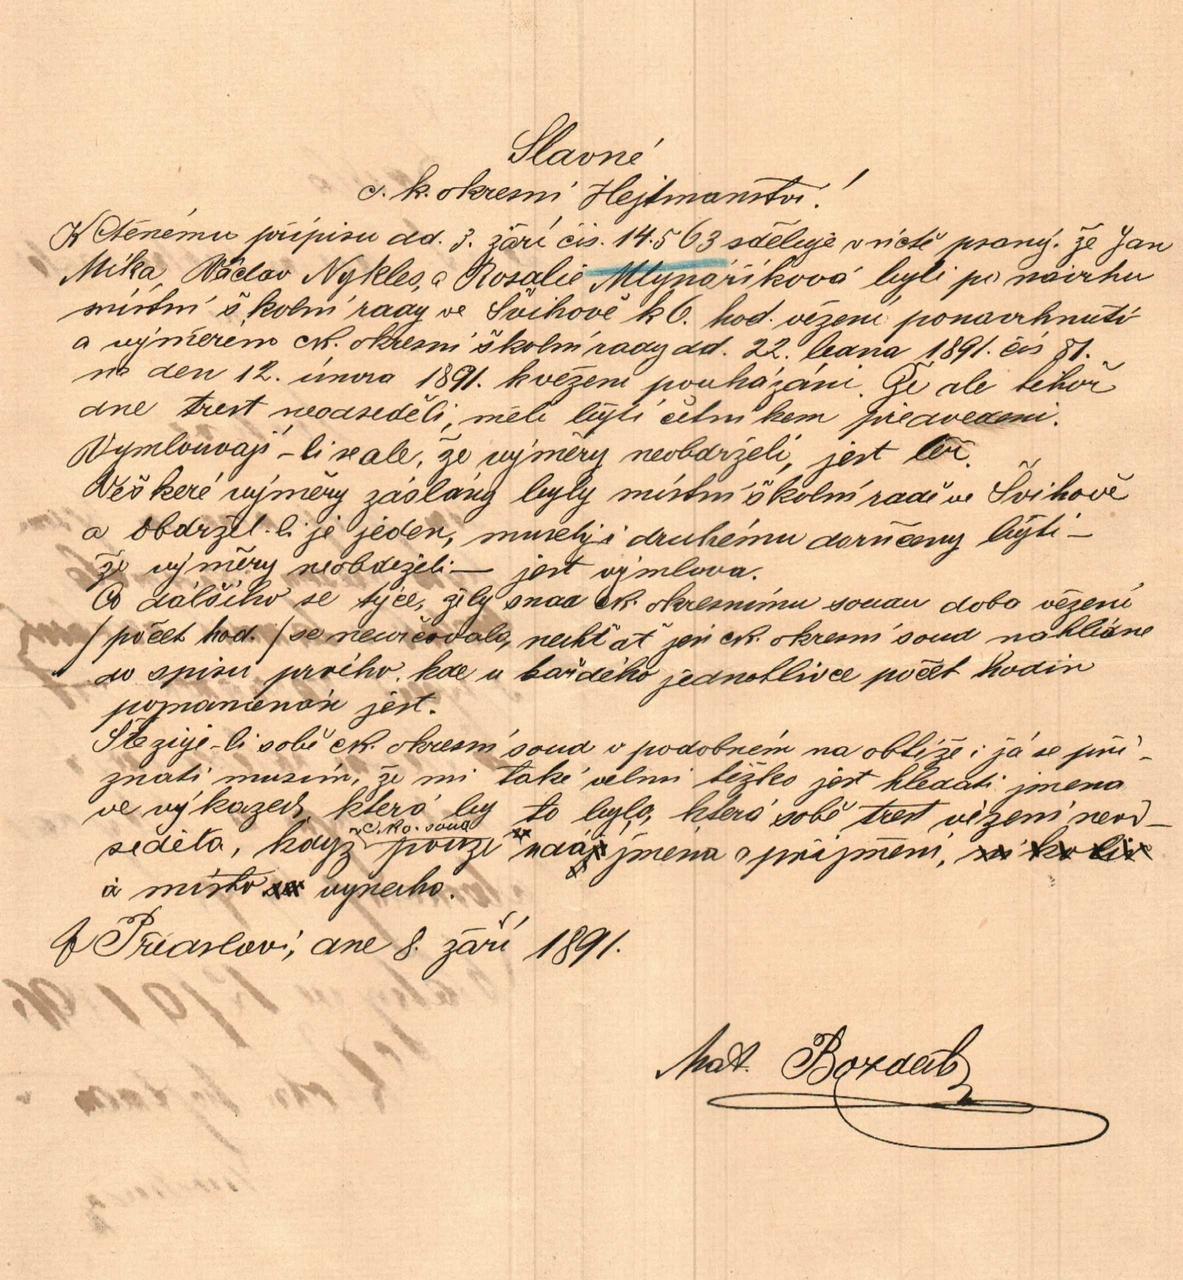 Slavné
c. k. okresní Hejtmanství!
K ctěnému přípisu dd. 3. září čís. 14.563 sděluje v úctě psaný. že Jan
Míka, Václav Nykles, a Rosalie Mlynaříková byli po návrhu
místní školní rady ve Švihově k 6. hod. vězení ponavrhnuti
a výměrem ck. okresní školní rady dd. 22. ledna 1891. čís 81.
na den 12. února 1891. k vězení poukázáni. Že ale téhož
dne trest neodseděli, měli býti četníkem předvedeni.
Vymlouvají-li se ale, že výměry neobdrželi, jest lež.
Veškeré výměry zaslány byly místní školní radě ve Švihově
a obdržel-li je jeden, musely i druhému doručeny býti –
že výměry neobdrželi – jest výmluva.
Co dalšího se týče, žeby snad ck. okresnímu soudu doba vězení
/počet hod./ se neurčovala, nechť až jen ck. okresní soud nahlédne
do spisu prvého, kde u každého jednotlivce počet hodin
poznamenán jest.
Stěžuje-li sobě ck. okresní soud v podobném na obtíže i já se při-
znati musím, že mi také velmi těžko jest hledati jmena
ve výkazech, která by to bylo, která sobě trest vězení neod-
seděla, když c. k. o. soud pouze udá jména a příjmení,
a místo vynechá.
V Předslavi, dne 8. září 1891.
Mat. Bozděch